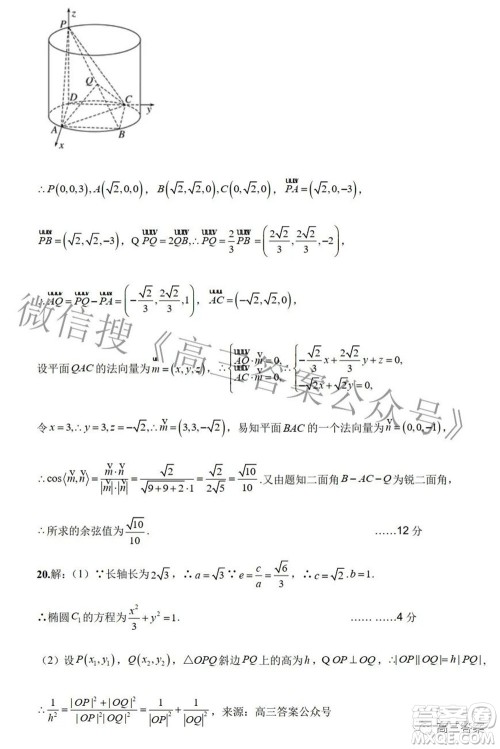 z
P
Q
D
C
y
A
B
x
∴P(0,0,3), A(√2,0,0), B(√2,√2,0), C(0,√2,0), PA=(√2,0,-3),
PB=(√2,√2,-3), Q PQ=2QB, ∴PQ=2/3 PB=(2√2/3, 2√2/3, -2),
∴AQ=PQ-PA=(-√2/3, 2√2/3, 1), AC=(-√2,√2,0),
设平面QAC的法向量为m=(x,y,z), ∴{AQ·m=0, AC·m=0, ∴{-√2/3 x+2√2/3 y+z=0, -√2x+√2y=0,
令x=3,∴y=3,z=-√2,∴m=(3,3,-√2), 易知平面BAC的一个法向量为n=(0,0,-1),
∴cos⟨m,n⟩=m·n/|m|·|n|=√2/√(9+9+2)·1=√2/2√5=√10/10.又由题知二面角B-AC-Q为锐二面角,
∴所求的余弦值为√10/10. ……12分
20.解:(1)∵长轴长为2√3,∴a=√3 ∵e=c/a=√6/3,∴c=√2.b=1.
∴椭圆C₁的方程为x²/3+y²=1. …… ……4分
(2)设P(x₁,y₁), Q(x₂,y₂), △OPQ斜边PQ上的高为h, Q OP⊥OQ, ∴|OP||OQ|=h|PQ|,
∴1/h²=|OP|²+|OQ|²/|OP|²|OQ|²=1/|OP|²+1/|OQ|², 来源:高三答案公众号
微信搜《高三答案公众号》
高三答案